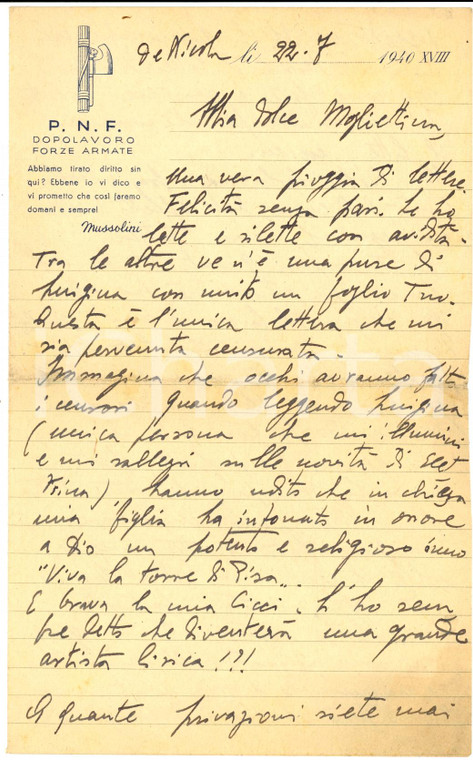 P. N. F.
DOPOLAVORO
FORZE ARMATE
Abbiamo tirato diritto sin
qui? Ebbene io vi dico e
vi prometto che così faremo
domani e sempre!
Mussolini
De Nicola li 22-7 1940 XVIII
Mia dolce Mogliettina,
una vera pioggia di lettere
Felicità senza pari. Le ho
lette e rilette con avidità.
Tra le altre ve n'è una pure di
Luigina con unito un foglio Tuo.
Questa è l'unica lettera che mi
sia pervenuta censurata.
Immagina che occhi avranno fatt
i censori quando leggendo Luigina
(unica persona che mi illumini
e mi rallegri sulle novità di
) hanno udito che in chiesa
mia figlia ha intonato in onore
a Dio un potente e religioso inno
"Viva la torre di Pisa...
E brava la mia Cicci. L'ho sem
pre detto che diventerà una grande
artista lirica!?!
A quante privazioni siete mai